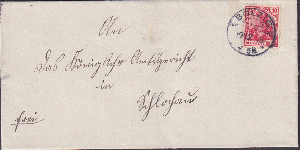 An
das Königliche Amtsgericht
in
Schlochau
frei
10